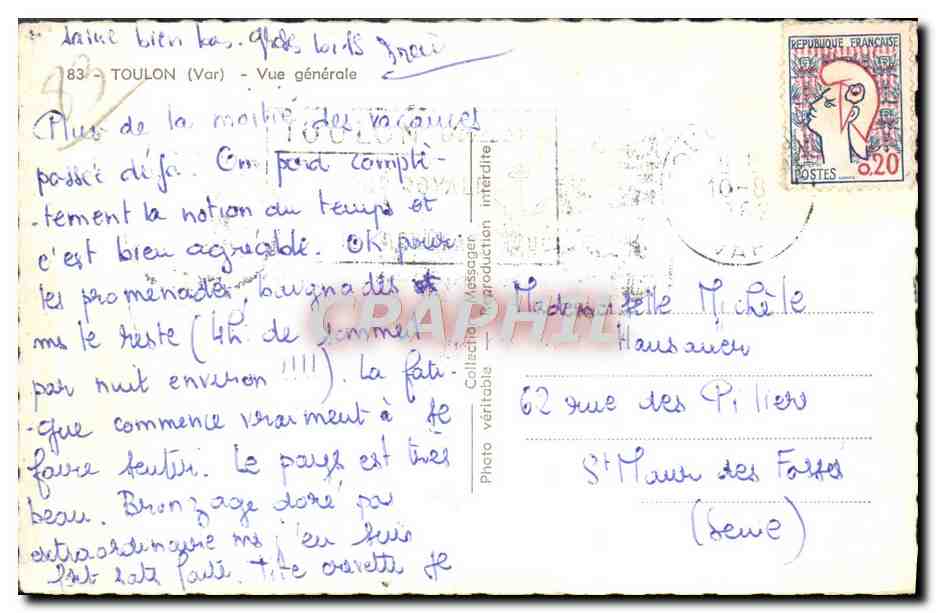 bien bas. gros
83 - TOULON (Var) - Vue générale
83
Plus de la moitié des vacances
passée déjà. On perd complè-
-tement la notion du temps et
c'est bien agréable. OK pour
les promenades, baignades et
ms le reste (4h. de sommeil
par nuit environ !!!!). La fati-
-gue commence vraiment à se
faire sentir. Le pays est très
beau. Bronzage doré pas
extraordinaire ms j'en suis
TOULON
Collection Messager
Photo véritable - Reproduction interdite
REPUBLIQUE FRANÇAISE
POSTES 0,20
10-8
VAR
Mademoiselle Michèle
62 rue des Piliers
St Maur des Fossés
(Seine)
CRAPHIL